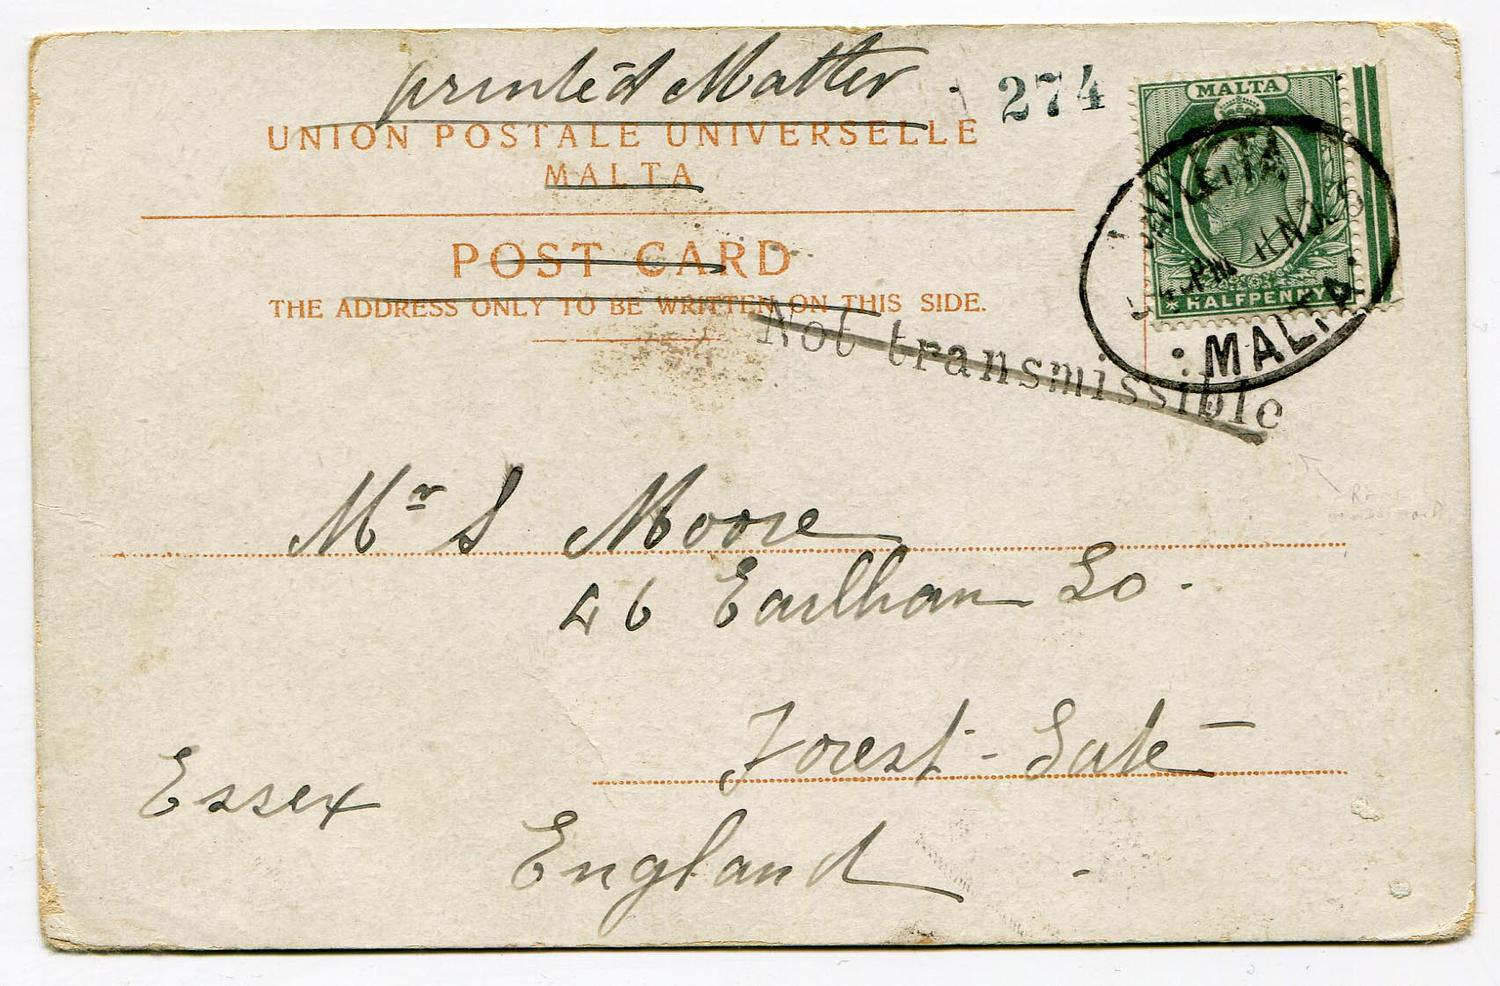 printed Matter
274
UNION POSTALE UNIVERSELLE
MALTA
POST CARD
THE ADDRESS ONLY TO BE WRITTEN ON THIS SIDE.
MALTA
HALFPENNY
VALLETTA
MALTA
Not transmissible
Mr S Moore
46 Earlham Go.
Forest-Gate
Essex
England